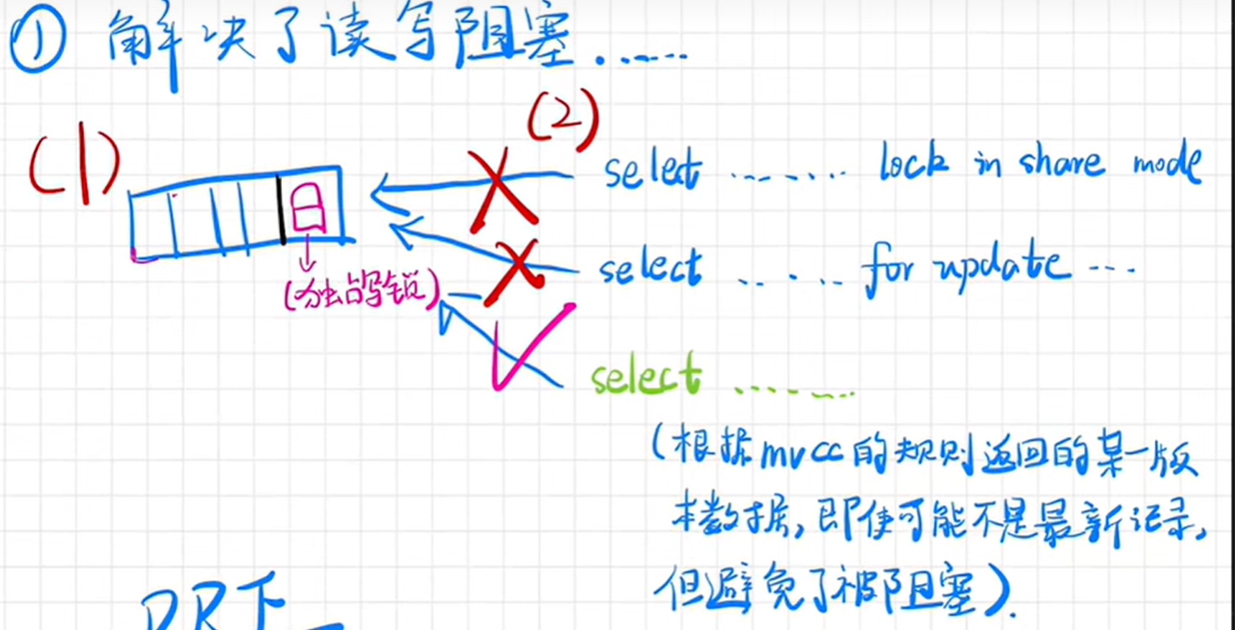 ① 解决了读写阻塞......
(1)
(2)
select ........ lock in share mode
select ..... for update ...
(独占写锁)
select ........
(根据mvcc的规则返回的某一版
本数据,即使可能不是最新记录,
但避免了被阻塞).
RR下